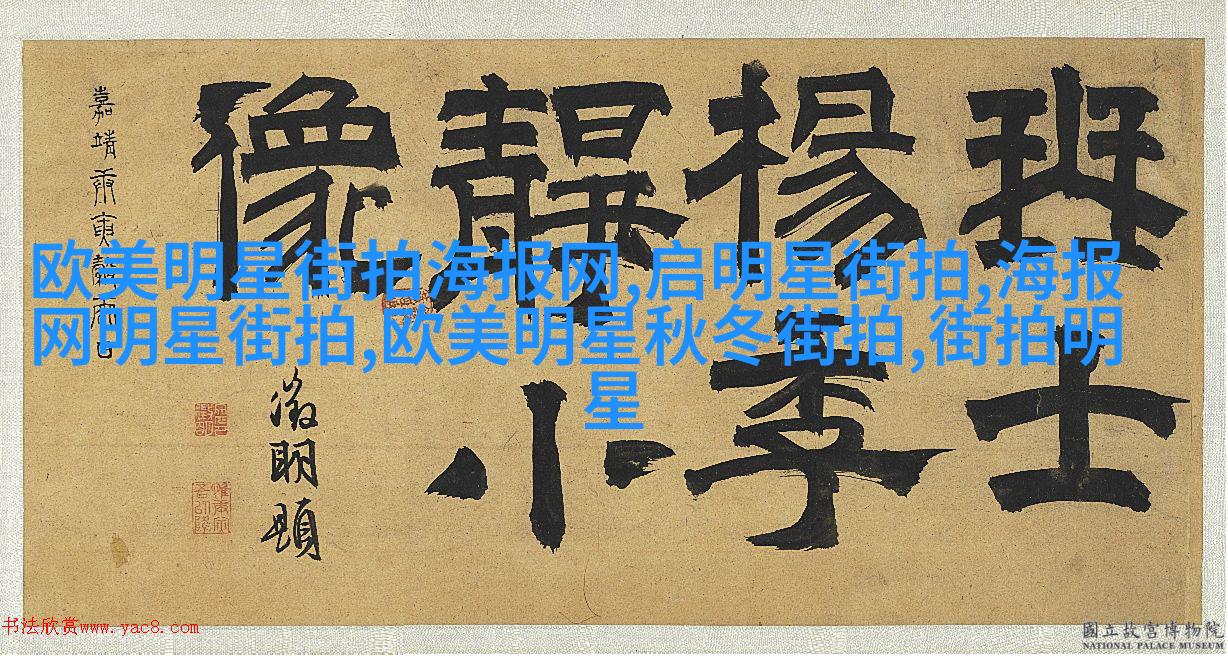 欧美明星街拍海报网,启明星街拍,海报
网明星街拍,欧美明星秋冬街拍,街拍明
星
琴士
楊季
靜小
像
嘉靖庚寅穀雨日
徵明題
书法欣赏www.yac8.com
國立故宮博物院
NATIONAL PALACE MUSEUM